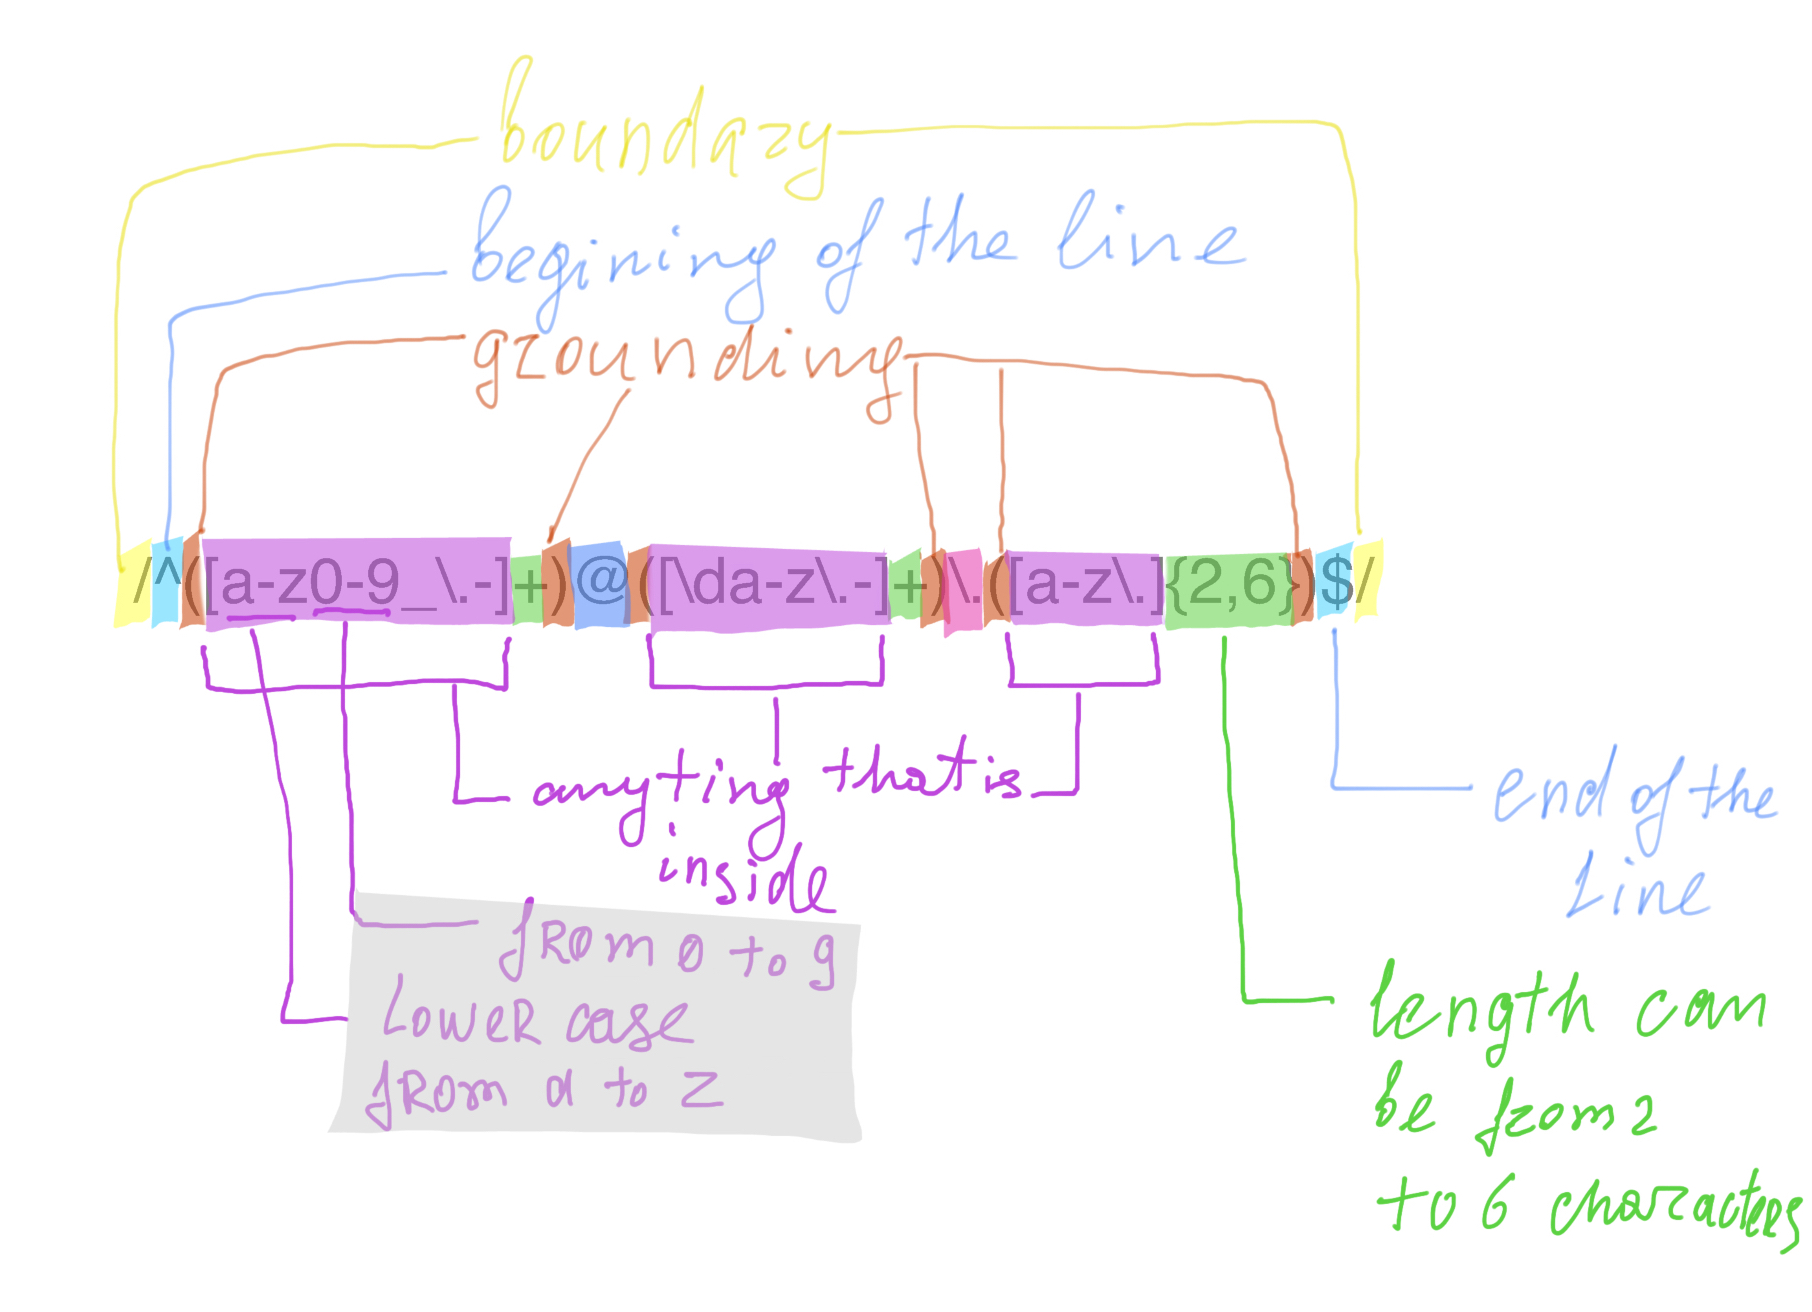 boundary
begining of the line
grounding
/^([a-z0-9_\.-]+)@([\da-z\.-]+)\.([a-z\.]{2,6})$/
anyting that is
inside
from 0 to 9
Lower case
from a to z
end of the
Line
length can
be from 2
to 6 characters